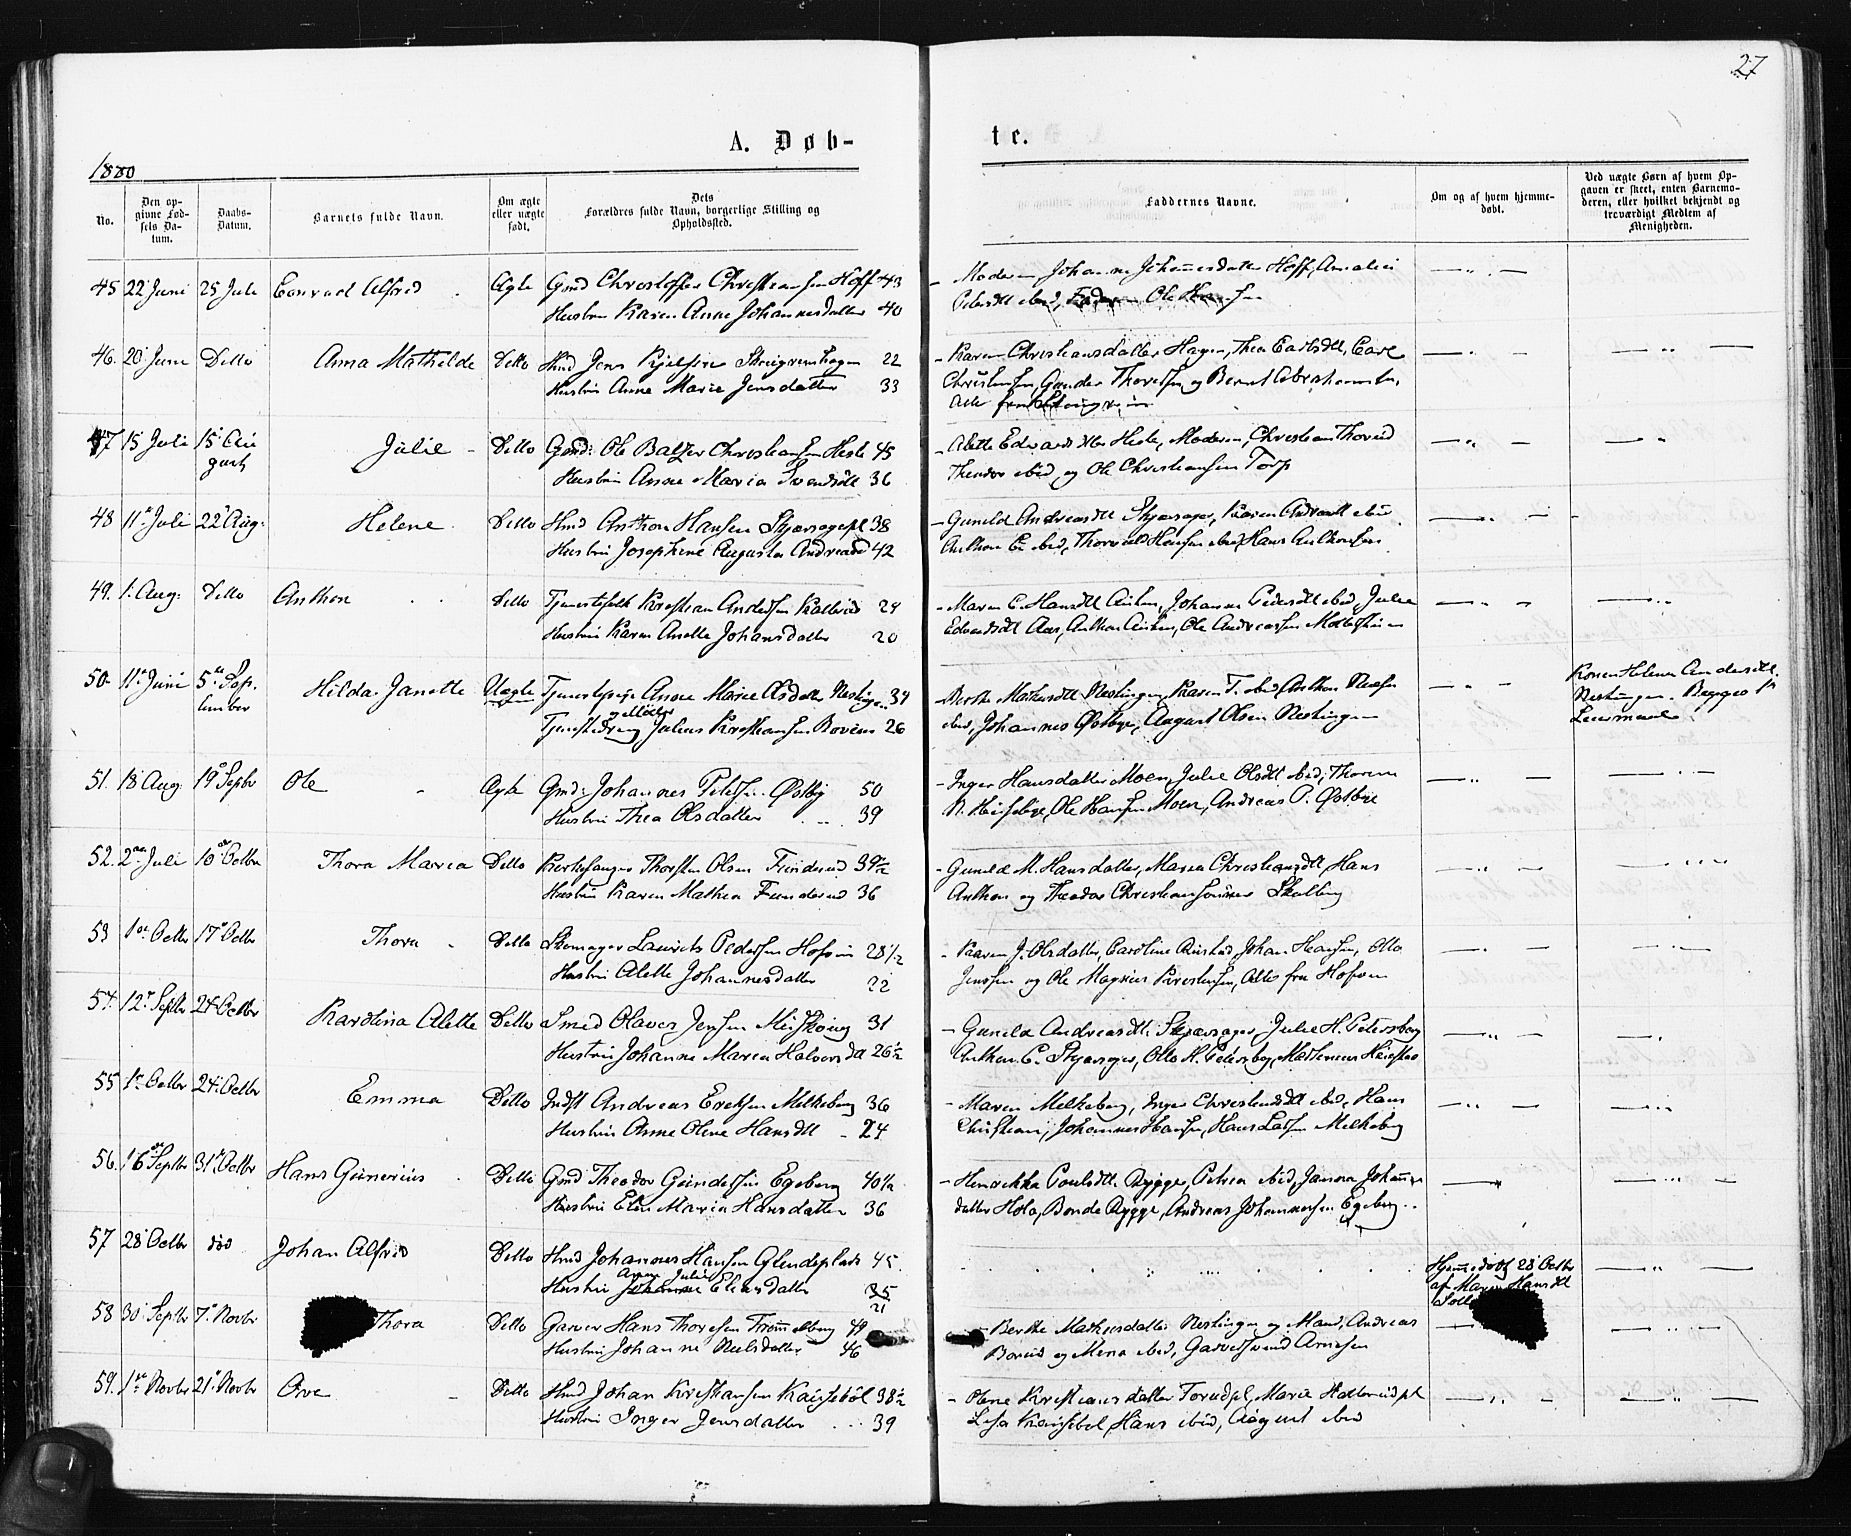 27
A. Døb-
te.
1880
No.
Den op-
givne Fød-
sels Da-
tum.
Daabs-
Datum.
Barnets fulde Navn.
Om ægte
eller uægte
født.
Dets
Forældres fulde Navn, borgerlige Stilling og
Opholdssted.
Faddernes Navne.
Om og af hvem hjemme-
døbt.
Ved uægte Børn af hvem Op-
gaven er skeet, enten Barnemo-
deren, eller hvilket bekjendt og
troværdigt Medlem af
Menigheden.
45 22 Juni 25 Juli Conrad Alfred Ægte Gmd Christoffer Christiansen Hoff 43
Hustru Karen Anne Johannesdatter 40
Moderen, Johanne Johannesdatter Hoff, Amalie
Pedersdtt ibid, Ole Hansen
46. 20 Juni Ditto Anna Mathilde Ditto Hmd Jens Kjelsen 22
Hustru Anne Marie Jensdatter 33
Karen Christiansdatter Hagen, Thea Carlsdtt, Carl
Christensen, Gunder Thoresen og Bernt Abrahamsen,
Alle fra
47 15 Juli 15 Au
gust
Julie Ditto Gmd: Ole Baltzer Christiansen Hesle 45
Hustru Anne Maria Svendsdtt 36
Alette Edvardsdtter Hesle, Moderen, Christian Thorud
Theodor ibid og Ole Christiansen Torp
48 11 Juli 22 Aug: Helene Ditto Hmd Anthon Hansen Skjørsagerpl 38
Hustru Josephine Augusta Andreasd 42
Gunild Andreasdtt Skjørsager, Karen Andreasdtt ibid
Anthon E. ibid, Thorvald Hansen ibid, Hans Anthonsen
49. 1. Aug: Ditto Anthon Ditto Tjenestefolk Kristian Andersen 24
Hustru Karen Anette Johansdatter 20
Maren C. Hansdtt, Johanne Pedersdtt ibid, Julie
Edvardsdtt Aas, Anthon, Ole Andreassen
50. 11 Juni 5 Sep.
tember
Hilda Janette Uægte Tjenestepige Anne Marie Olsdatter Nestingen 34
ugift
Tjenestedreng Julius Kristiansen Boveim 26
Berthe Mathisdtt Nestingen, Karen T. ibid, Anthon
ibid, Johannes Østbye, August Olsen Nestingen
Konen Helene Andersdtt
Nestingen. Begges 1ste
Leiermaal
51. 18 Aug 19 Septbr Ole Ægte Gmd: Johannes Peters. Østby 50
Hustru Thea Olsdatter 39
Inger Hansdatter Moen, Julie Olsdtt ibid, Thorine
N. Huseby, Ole Hansen Moen, Andreas P. Østbye
52. 2 Juli 10 Octbr Thora Maria Ditto Kirkesanger Thorsten Olsen Finderud 39½
Hustru Karen Mathea Finderud 36
Gunild M. Hansdatter, Maren Christiansdtt, Hans
Anthon og Theodor Christiansønner Skulberg
53 1 Octbr 17 Octbr Thora Ditto Skomager Laurits Pedersen Hofvin 28 1/2
Hustru Alette Johannesdatter 22
Karen J. Olsdatter, Caroline, Johan Hansen, Otto
Jenssen og Ole Magnus Kristensen, Alle fra Hofvin
54. 12 Septbr 24 Octbr Karolina Alette Ditto Smed Olaves Jensen 31
Hustru Johanne Maria Halvorsdtt 26½
Gunild Andreasdtt. Skjørsager, Julie H. Petersborg
Anthon E. Skjørsager, Otto H. Petersborg, Mathinius
55 1 Octbr 24 Octbr Emma Ditto Indst Andreas Eriksen Melkeberg 36
Hustru Anne Oline Hansdtt 24
Maren Melkeberg, Inger Christensdtt ibid, Hans
Christian, Johannes Hansen, Hans Larsen Melkeberg
56. 16 Septbr 31 Octbr Hans Gunerius Ditto Gmd Theodor Gundersen Egeberg 40½
Hustru Elen Maria Hansdatter 36
Henrikke Poulsdtt. Rygge, Petrea ibid, Janna Johannes
datter Hola, Bonde Rygge, Andreas Johannessen Egeberg
57 28 Octbr død Johan Alfred Ditto Hmd Johannes Hansen Glendeplads 45
Anne Julie
Hustru Johanne Eliasdatter 35
21
Hjemmedøbt 28 Octbr
af Maren Hansdtt
58 30 Septbr 7 Novbr Thora Ditto Garver Hans Thoresen Trømelborg 49
Hustru Johanne Nielsdatter 46
Berthe Mathisdatter Nestingen og Mand, Andreas
Borud og Mena ibid, Garversvend Arnesen
59. 1 Novbr 21 Novbr Ove Ditto Hmd Johan Kristiansen Kausebøl 38½
Hustru Inger Jensdatter 39
Olene Kristiansdatter Torudpl, Marie
Lisa Kausebøl, Hans ibid, August ibid